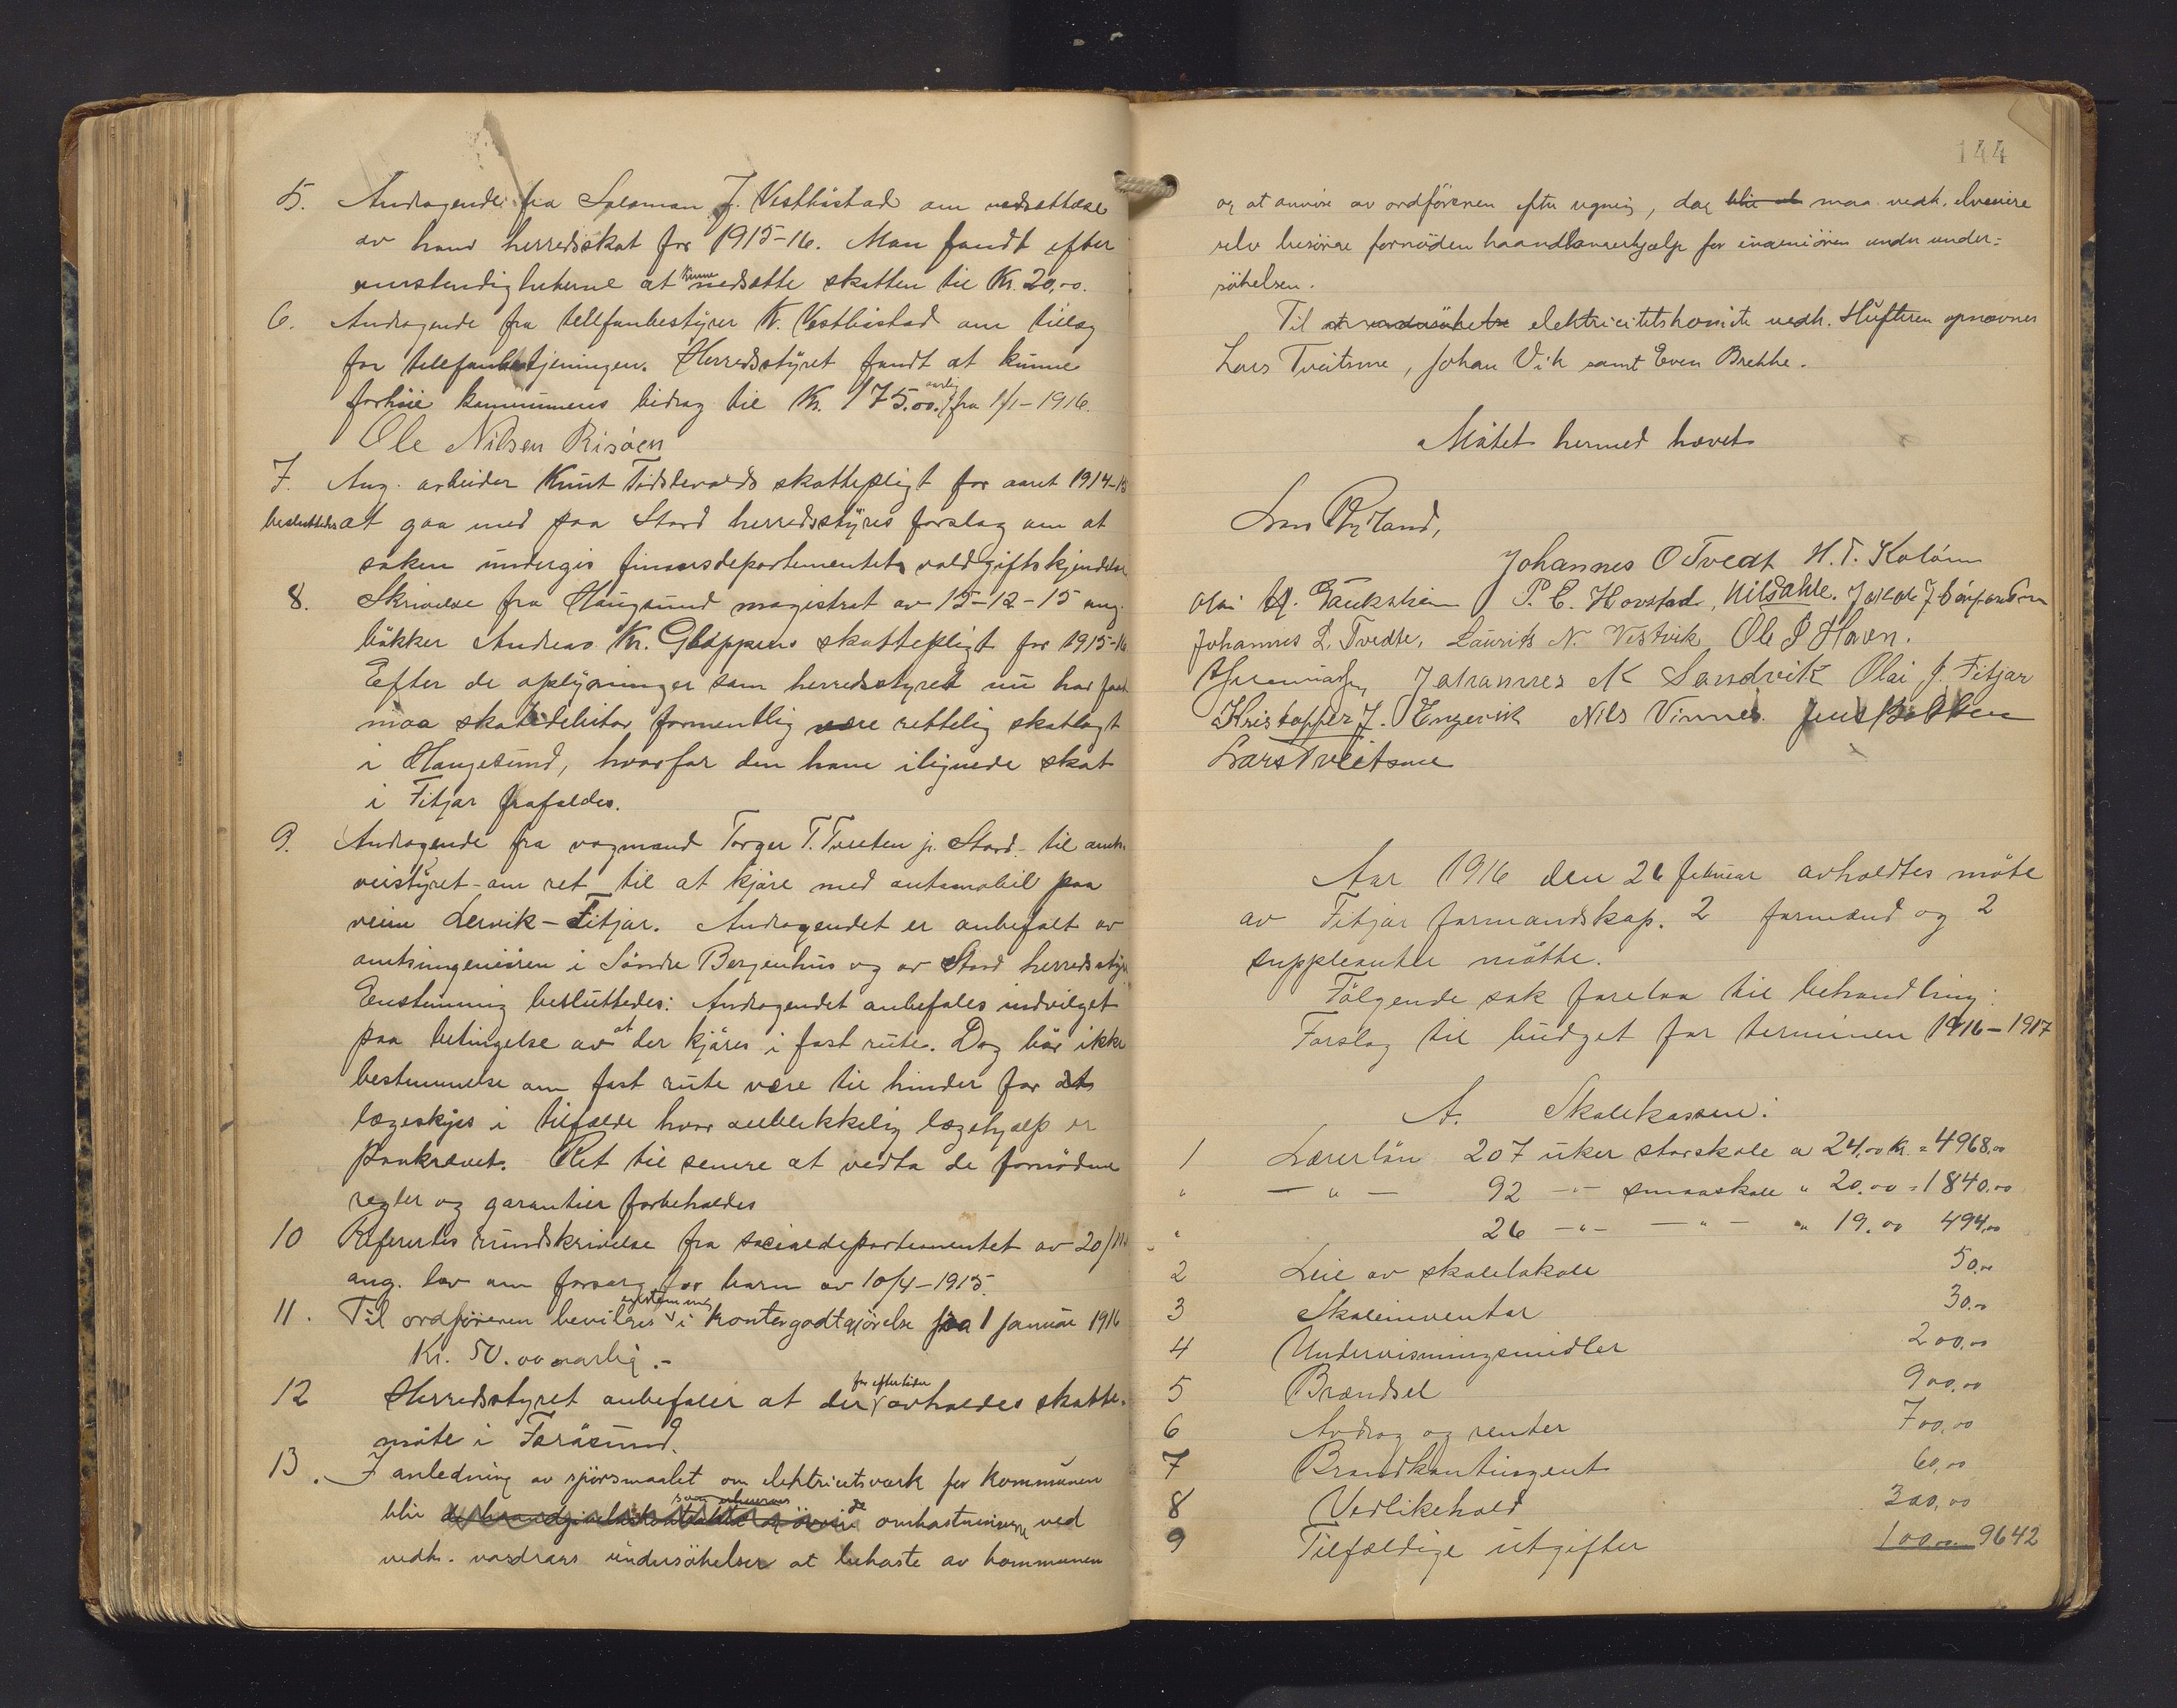 5. Andragende fra Salamon J. Vestböstad om nedsættelse
av hans herredsskat for 1915-16. Man fandt efter
omstendigheterne at kunne nedsætte skatten til Kr. 20,00.
6. Andragende fra telefonbestyrer K. Vestböstad om tillæg
for telefonbetjeningen. Herredsstyret fandt at kunne
forhöie kommunens bidrag til Kr. 175.00. aarlig fra 1/1-1916.
Ole Nilsen Risöen
7. Ang. arbeider Knut skattepligt for aaret 1914-15
besluttedes at gaa med paa Stord herredsstyres forslag om at
saken undergis finansdepartementets voldgiftskjendelse
8. Skrivelse fra Haugesund magistrat av 15-12-15 ang.
bökker Andreas Kr. Gloppens skattepligt for 1915-16
Efter de oplysninger som herredsstyret nu har faat
maa skatedebitor formentlig være rettelig skatlagt
i Haugesund, hvorfor den ham ilignede skat
i Fitjar frafaldes.
9. Andragende fra vognmand Torger T. Tveten jr. Stord - til amts
veistyret - om ret til at kjöre med automobil paa
veien Lervik-Fitjar. Andragendet er anbefalt av
amtsingeniören i Söndre Bergenhus og av Stord herredsstyre
Enstemmig besluttedes: Andragendet anbefales indvilget
paa betingelse av at der kjöres i fast rute. Dog bör ikke
bestemmelse om fast rute være til hinder for
lægeskyss i tilfælde hvor öieblikkelig lægehjælp er
paakrævet. Ret til senere at vedta de fornödne
regler og garantier forbeholdes
10 Refererdes rundskrivelse fra socialdepartementet av 20/11
ang. lov om forsorg for barn av 10/4-1915.
11. Til ordföreren bevilges enstemmig i kontorgodtgjörelse fra 1 januar 1916
Kr. 50.00 aarlig.-
12 Herredsstyret anbefaler at der for eftertiden avholdes skatte-
möte i Faröesund.
13. I anledning av spörsmaalet om elektricitsværk for kommunen
blir de omkostningerne ved
vedk. vasdrags undersökelser at bekoste av kommunen
144
og at anvise av ordföreren efter regning, dog blir at maa vedk.
selv besörge fornöden haandlangerhjælp for ingeniören under under=
sökelsen.
Til elektricitetskomite vedk. Hufteren opnævnes
Lars Tveitsme, Johan Vik samt Even Brekke.
Mötet hermed hævet
Lars Rydland,
Johannes O Tvedt H. T. Kaloen
Olai P. E. Hovstad, Nils Dahle.
Johannes L. Tvedte, Laurits N. Vestvik Ole J Havn.
Johannes K Sandvik Olai J. Fitjar
Kristoffer J. Engevik Nils Vinnes
Lars Tveitsme
Aar 1916 den 26 februar avholdtes möte
av Fitjar formandskap. 2 formænd og 2
suppleanter mötte.
Fölgende sak forelaa til behandling:
Forslag til budget for terminen 1916-1917
A. Skolekassen:
1 Lærerlön 207 uker storskole a 24,00 Kr. = 4968,00
" - " - 92 - " - smaaskole " 20.00 = 1840,00
" 26 - " - - " - " 19.00 494,00
2 Leie av skolelokale 50,00
3 Skoleinventar 30,00
4 Undervisningsmidler 200,00
5 Brændsel 900,00
6 Avdrag og renter 700,00
7 Brandkontingent 60,00
8 Vedlikehold 300,00
9 Tilfældige utgifter 100,00 9642